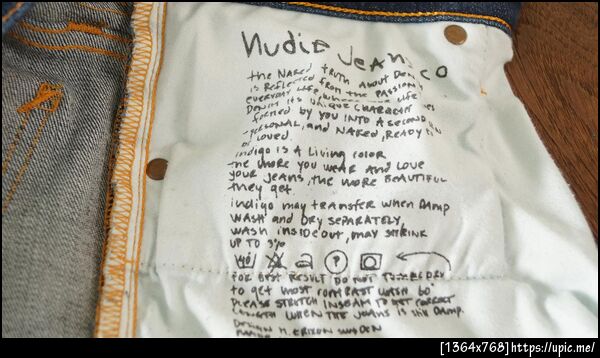 Nudie Jeans CO
the NAKED truth About DENIM
is REFLECTED from the PASSION
EVERYDAY LIFE LIFE
DENIM its UNIQUE CHARACTER
FORMED by YOU INTO A SECOND
PERSONAL, AND NAKED, READY
LOVED.
indigo is A Living color
the more you WEAR AND LOVE
your JEANS, the more BEAUTIFUL
they get
indigo may transfer when damp
WASH and DRY SEPARATELY,
WASH INSIDEOUT, MAY SHRINK
UP TO 3%
FOR BEST RESULT DO NOT DRY
to get most CONTRAST WASH 60°
PLEASE STRETCH INSEAM to get correct
LENGTH WHEN THE JEANS is still DAMP.
DESIGN M. ERIXON SWEDEN
[1364x768]https://upic.me/